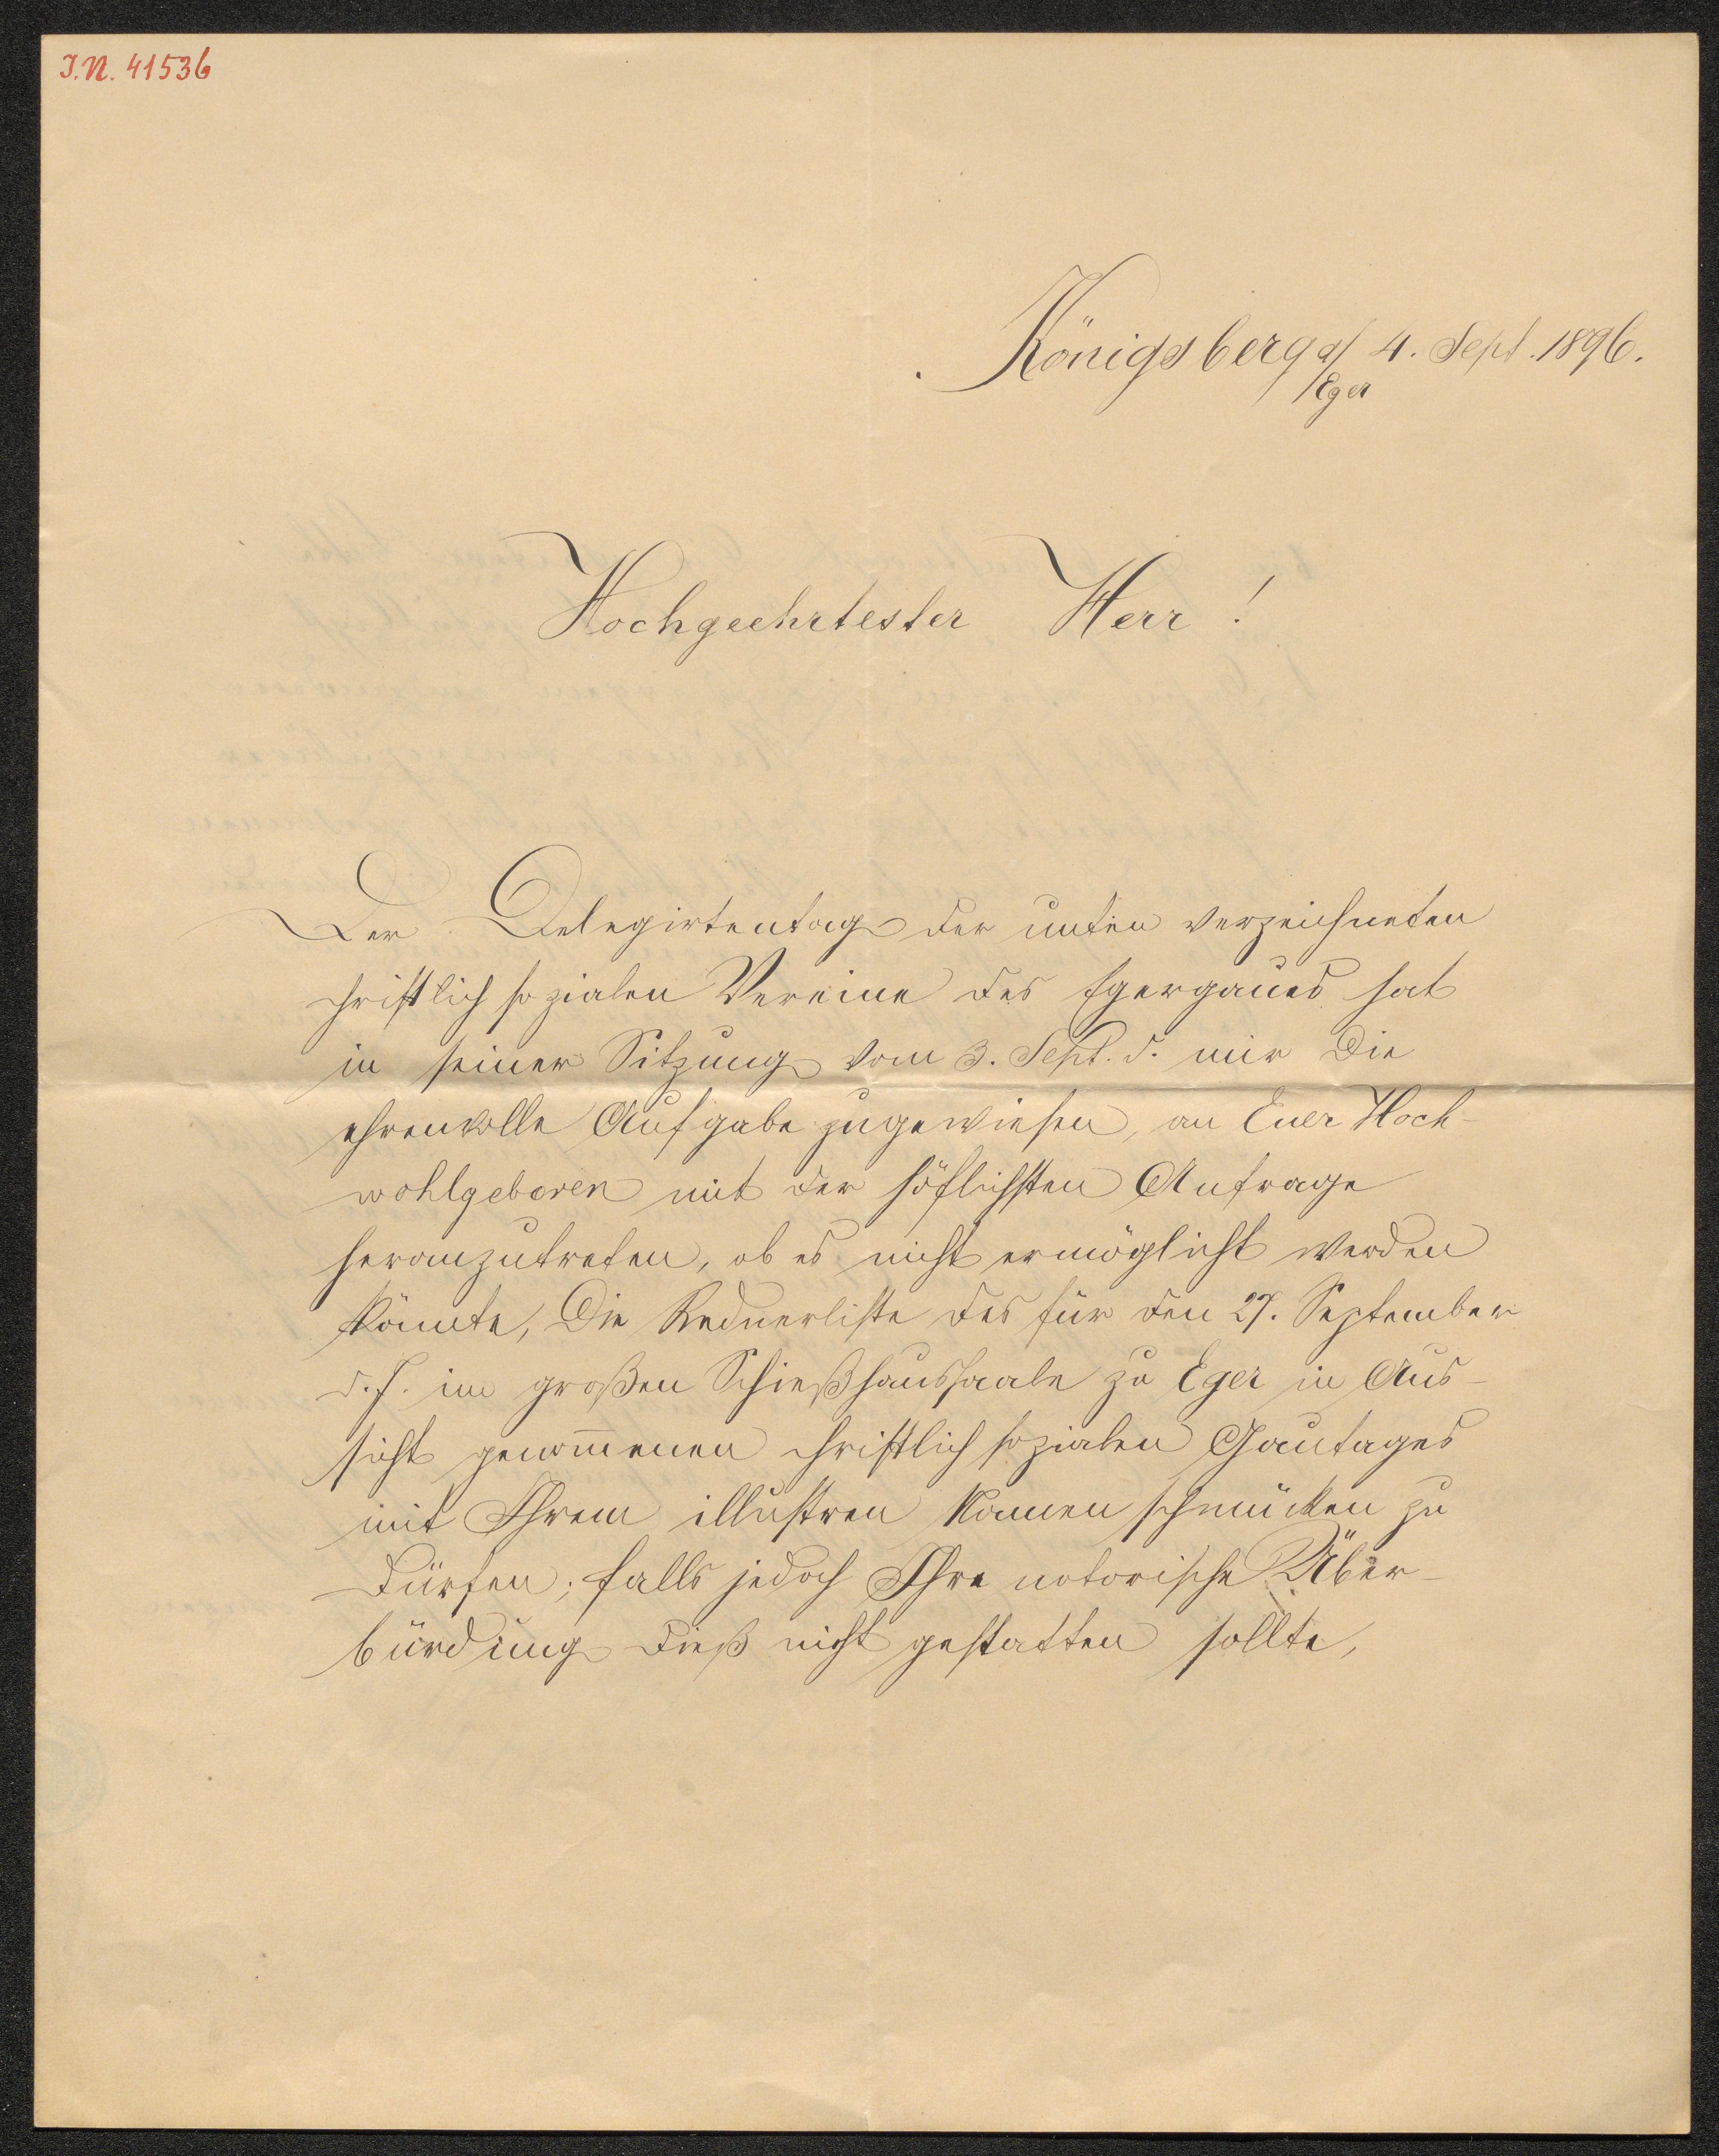 I.N. 41536
Königsberg a/ 4. Sept. 1896.
Eger
Hochgeehrtester Herr!
Der Delegirtentag der unten verzeichneten
christlich sozialen Vereine des Egergaues hat
in seiner Sitzung vom 3. Sept. d. mir die
ehrenvolle Aufgabe zugewiesen, an Euer Hoch-
wohlgeboren mit der höflichsten Anfrage
heranzutreten, ob es nicht ermöglicht werden
könnte, die Rednerliste des für den 27. September
d. J. im großen Schießhaussaale zu Eger in Aus-
sicht genom̅enen christlich sozialen Gautages
mit Ihrem illustren Namen schmücken zu
dürfen; falls jedoch Ihre notorische Über-
bürdung dieß nicht gestatten sollte,